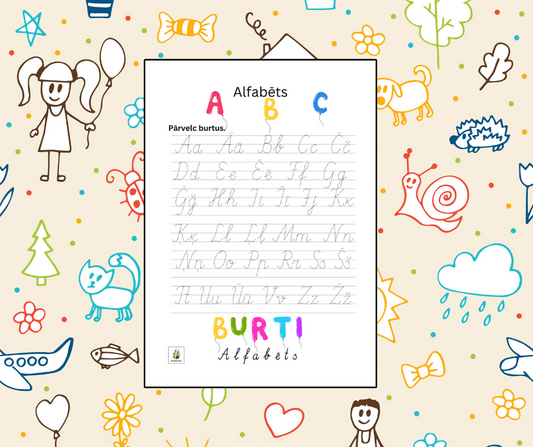 Alfabēts
A B C
Pārvelc burtus.
Aa Āā Bb Cc Čč
Dd Ee Ēē Ff Gg
Ģģ Hh Ii Īī Jj Kk
Ķķ Ll Ļļ Mm Nn
Ņņ Oo Pp Rr Ss Šš
Tt Uu Ūū Vv Zz Žž
BURTI
Alfabets